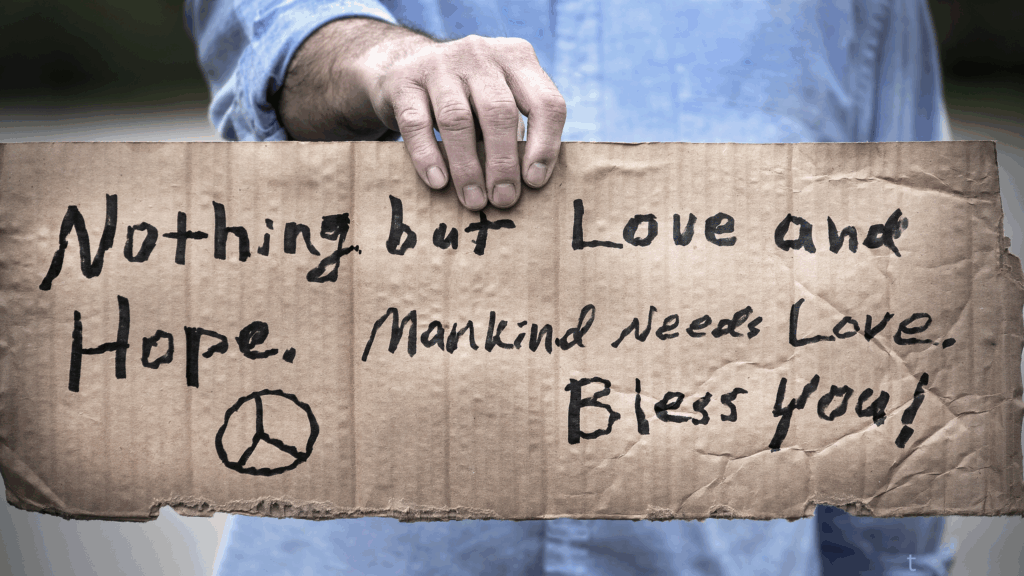 Nothing but Love and
Hope. Mankind Needs Love.
Bless you!
t